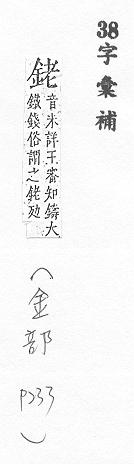 38字彙補
銠
音未詳王審知鑄大
鐵錢俗謂之銠𠛱
(金部 P233)